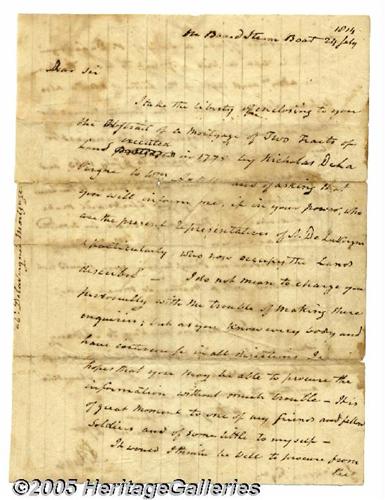 1814
On Board Steam Boat 24 July
Dear Sir
I take the liberty of enclosing to you
the Abstract of a Mortgage of Two Tracts of
Land executed in 177 by Nicholas DeLa
to and of asking that
you will inform me, if in your power, who
are the present Representatives of
& particularly who now occupy the Land
described — I do not mean to charge you
personally with the trouble of making these
enquiries; but as you know every body and
have in all directions I
hope that you may be able to procure the
information without much trouble — It is
of great moment to one of my friends and fellow
Soldiers and of some little to myself —
It would I think be well to procure from
the
Mortgage
©2005 HeritageGalleries